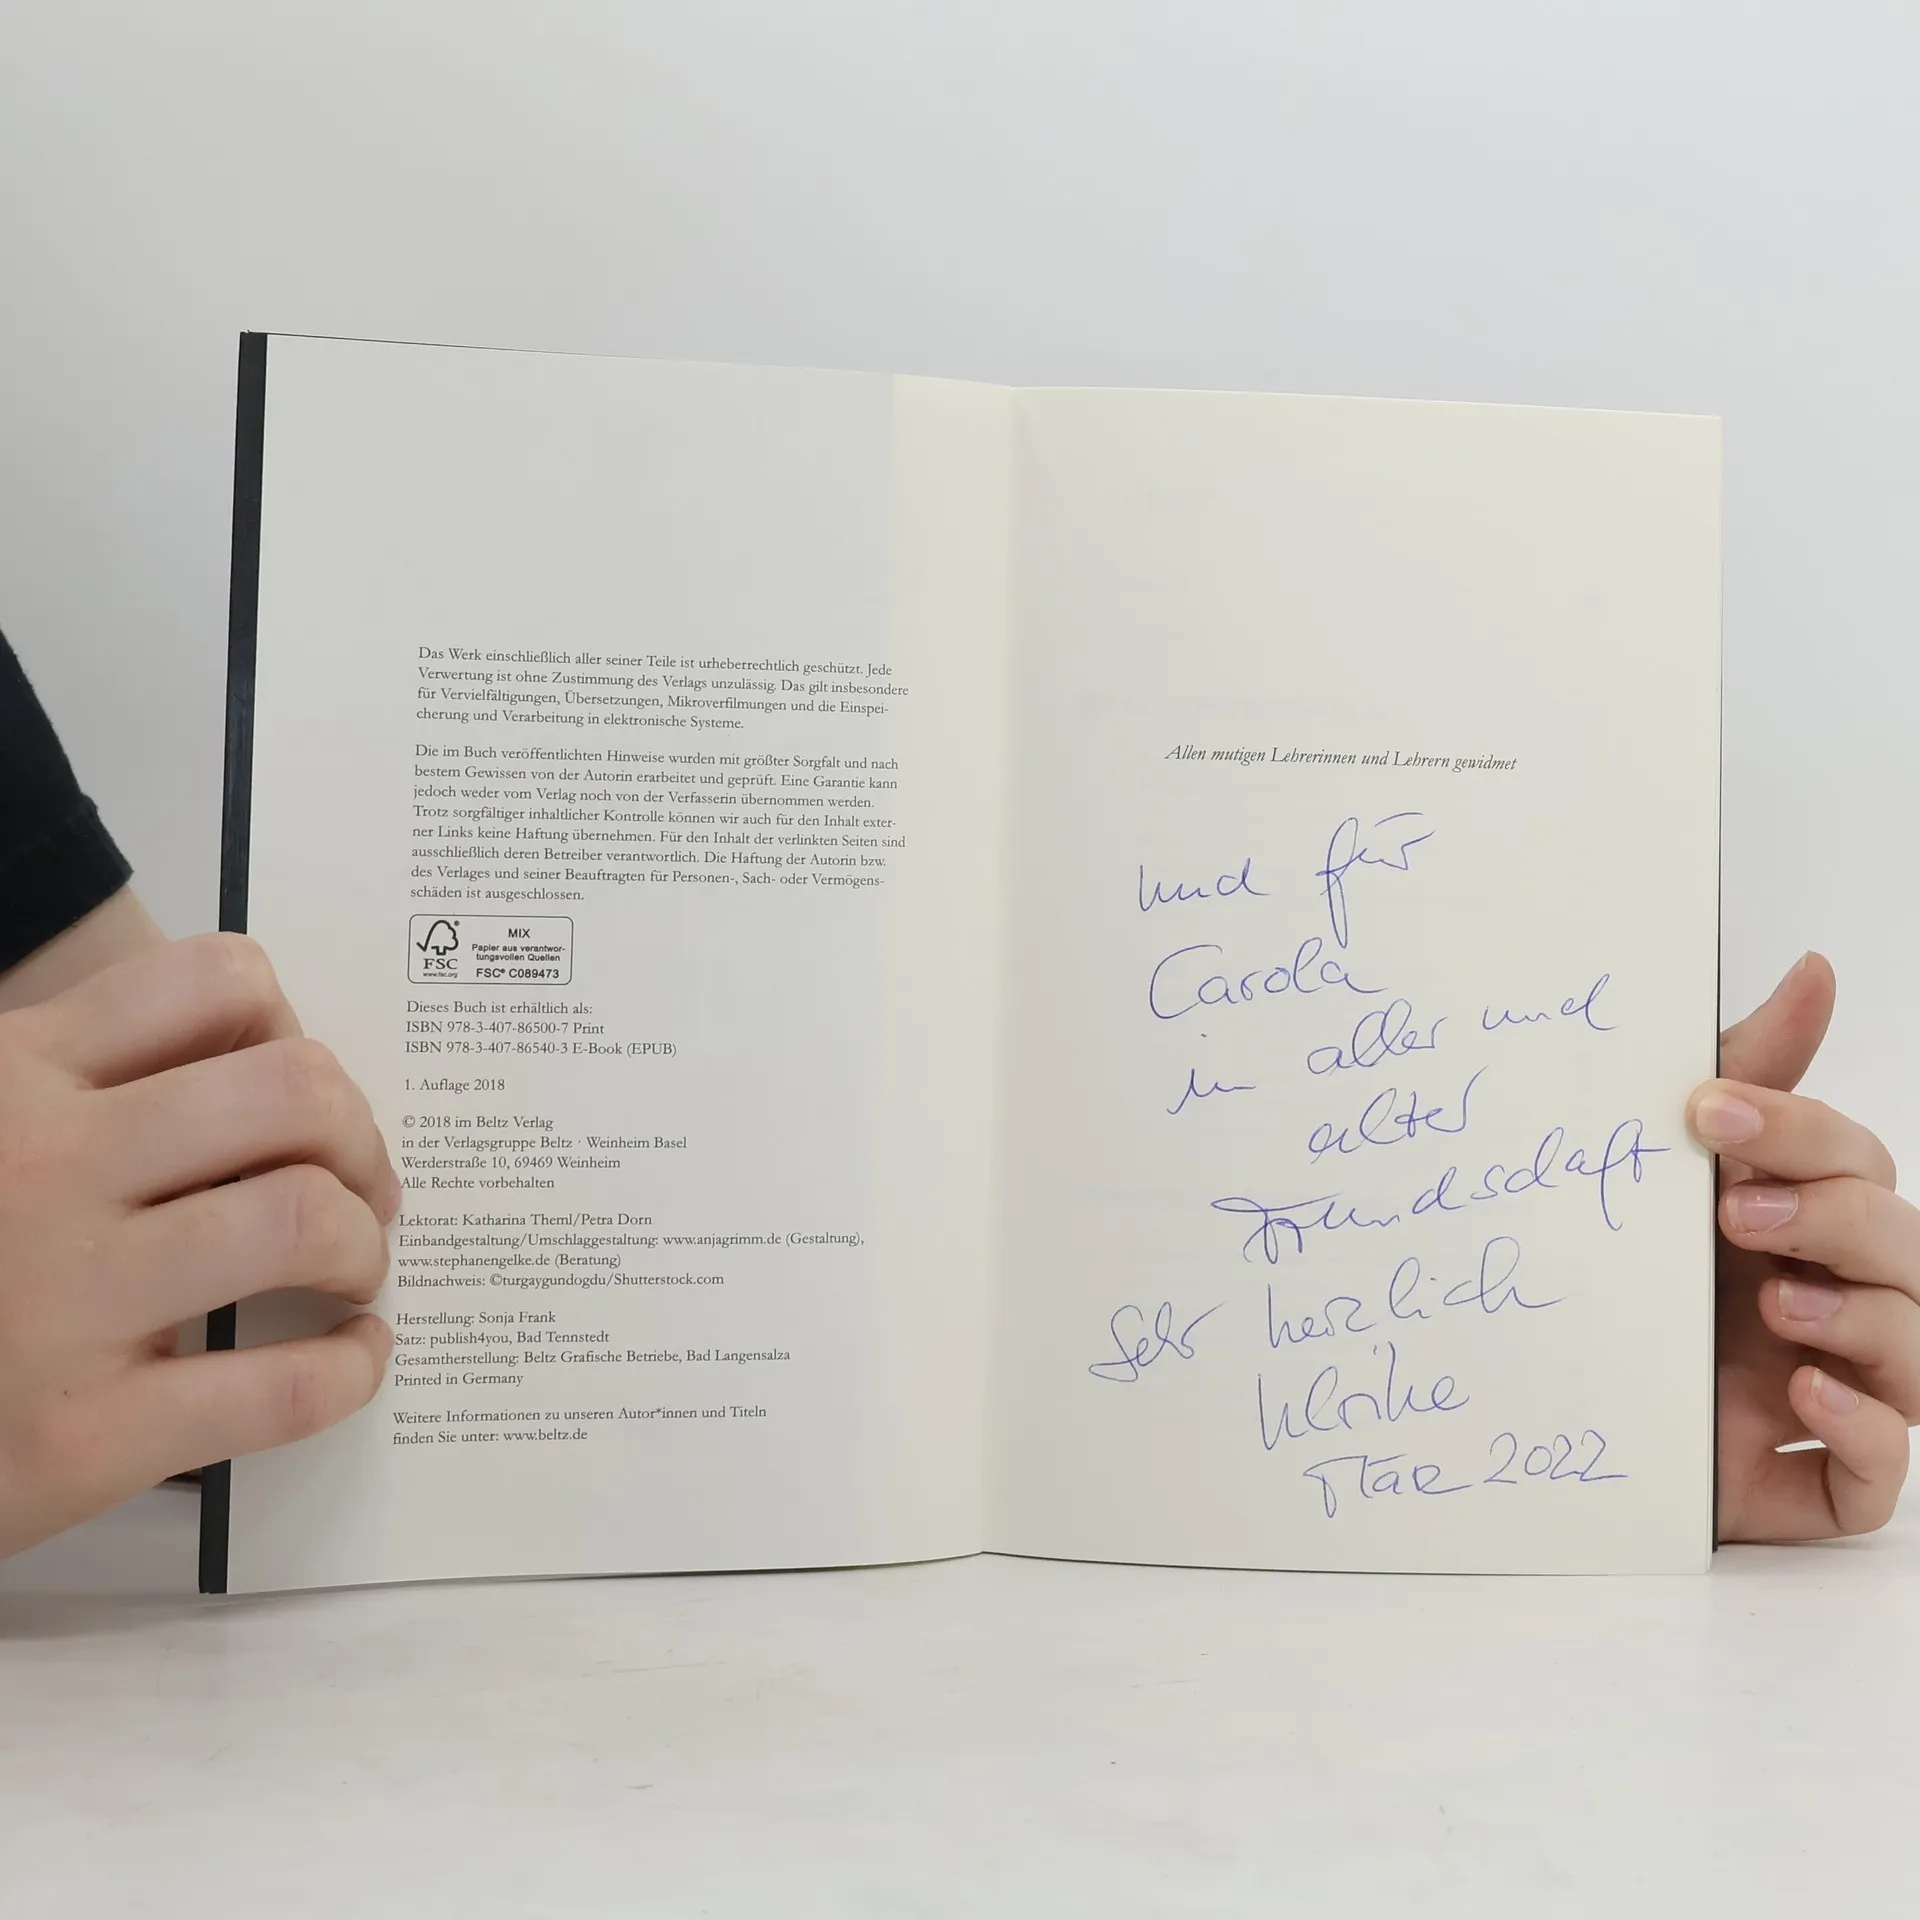 Das Werk einschließlich aller seiner Teile ist urheberrechtlich geschützt. Jede
Verwertung ist ohne Zustimmung des Verlags unzulässig. Das gilt insbesondere
für Vervielfältigungen, Übersetzungen, Mikroverfilmungen und die Einspei-
cherung und Verarbeitung in elektronische Systeme.
Die im Buch veröffentlichten Hinweise wurden mit größter Sorgfalt und nach
bestem Gewissen von der Autorin erarbeitet und geprüft. Eine Garantie kann
jedoch weder vom Verlag noch von der Verfasserin übernommen werden.
Trotz sorgfältiger inhaltlicher Kontrolle können wir auch für den Inhalt exter-
ner Links keine Haftung übernehmen. Für den Inhalt der verlinkten Seiten sind
ausschließlich deren Betreiber verantwortlich. Die Haftung der Autorin bzw.
des Verlages und seiner Beauftragten für Personen-, Sach- oder Vermögens-
schäden ist ausgeschlossen.
FSC
www.fsc.org
MIX
Papier aus verantwor-
tungsvollen Quellen
FSC® C089473
Dieses Buch ist erhältlich als:
ISBN 978-3-407-86500-7 Print
ISBN 978-3-407-86540-3 E-Book (EPUB)
1. Auflage 2018
© 2018 im Beltz Verlag
in der Verlagsgruppe Beltz · Weinheim Basel
Werderstraße 10, 69469 Weinheim
Alle Rechte vorbehalten
Lektorat: Katharina Theml/Petra Dorn
Einbandgestaltung/Umschlaggestaltung: www.anjagrimm.de (Gestaltung),
www.stephanengelke.de (Beratung)
Bildnachweis: ©turgaygundogdu/Shutterstock.com
Herstellung: Sonja Frank
Satz: publish4you, Bad Tennstedt
Gesamtherstellung: Beltz Grafische Betriebe, Bad Langensalza
Printed in Germany
Weitere Informationen zu unseren Autor*innen und Titeln
finden Sie unter: www.beltz.de
Allen mutigen Lehrerinnen und Lehrern gewidmet
und für
Carola
in aller und
alter
Freundschaft
Sehr herzlich
Ulrike
März 2022